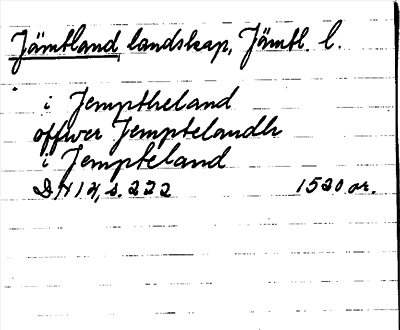 Jämtland, landskap, Jämtl. l.
i Jemptheland
offwer Jemptelandh
i Jempteland
DN 14, s. 222 1520 or.